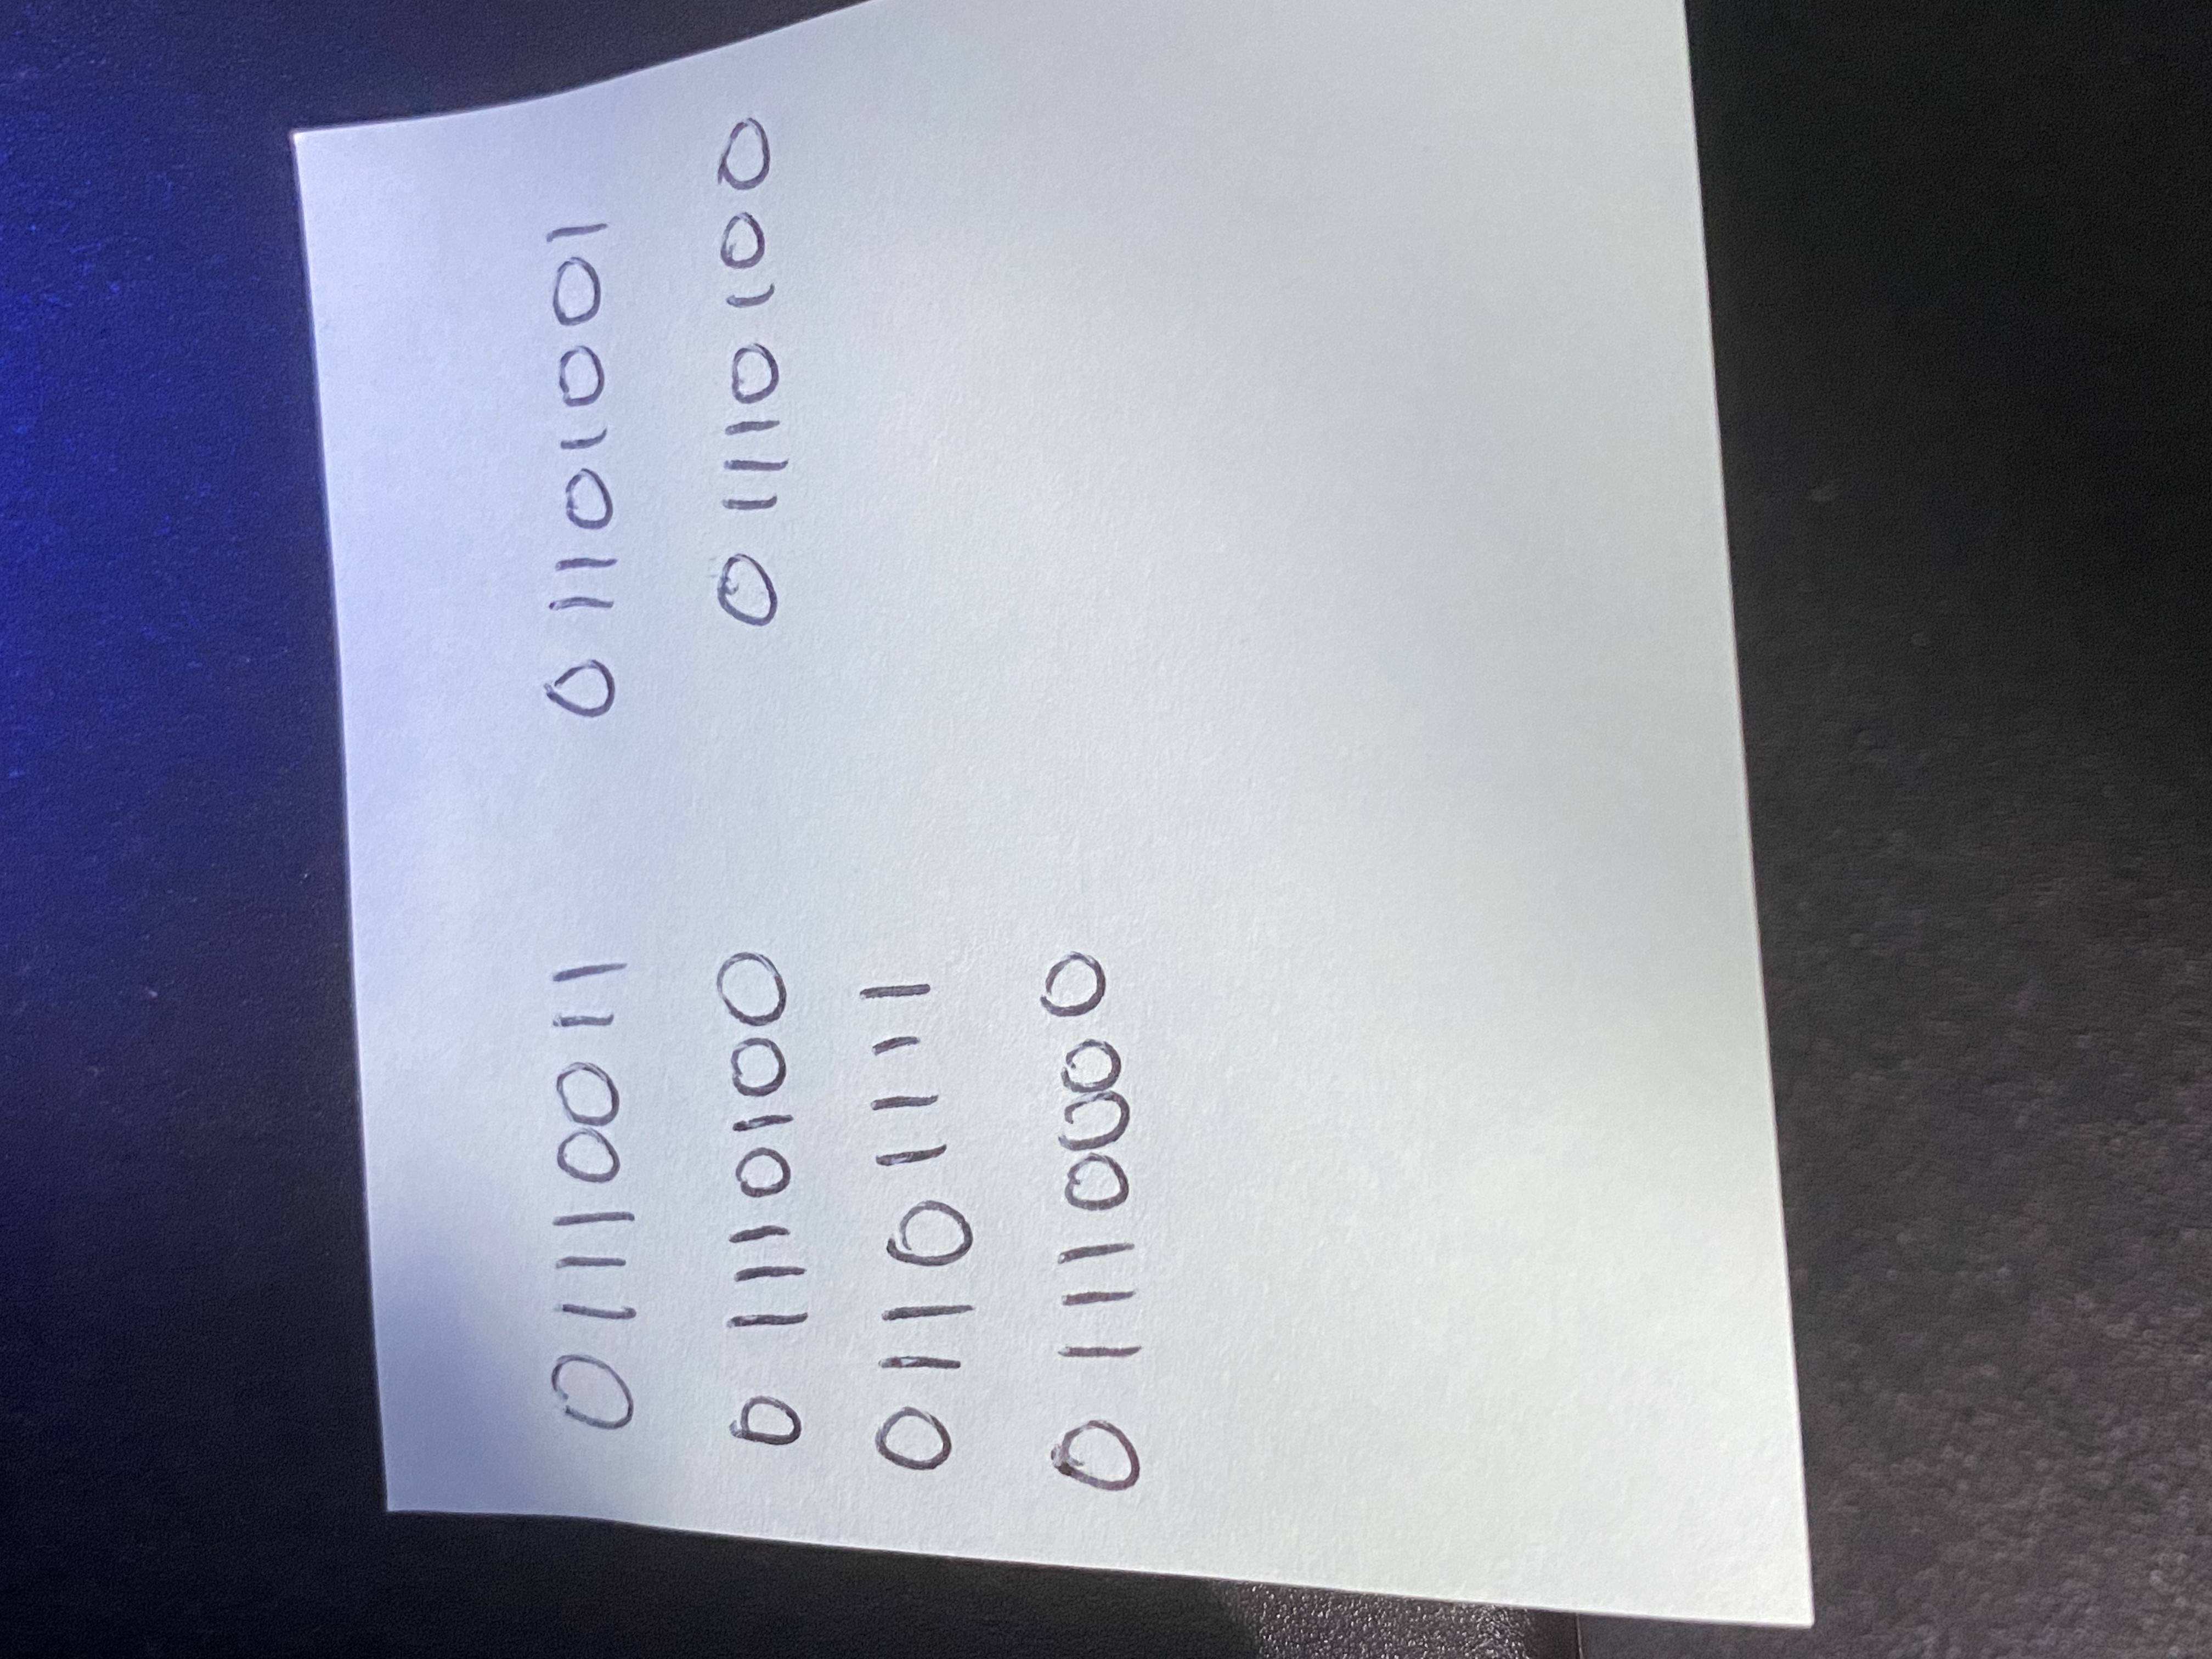 01110011
01110100
01101111
01110000
01101001
01110100